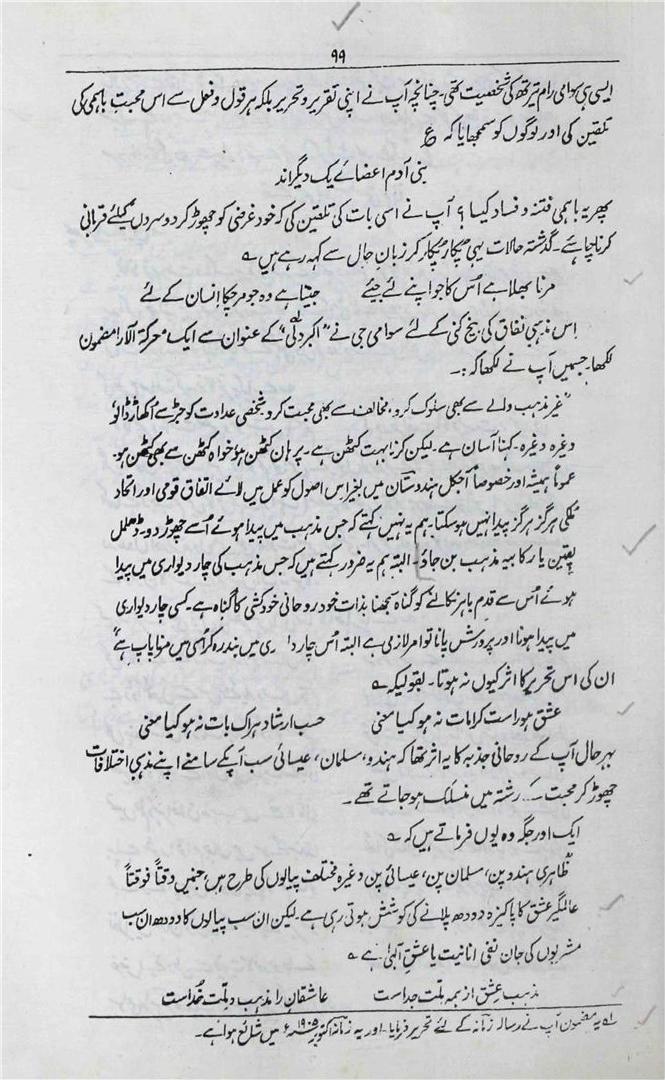 ۹۹
ایسی ہی سوامی رام تیرتھ کی شخصیت تھی۔ چنانچہ آپ نے اپنی تقریر و تحریر بلکہ ہر قول و فعل سے اس محبتِ باہمی کی
تلقین کی اور لوگوں کو سمجھایا کہ ع
بنی آدم اعضائے یک دیگراند
پھر یہ باہمی فتنہ و فساد کیسا؟ آپ نے اسی بات کی تلقین کی کہ خود غرضی کو چھوڑ کر دوسروں کیلئے قربانی
کرنا چاہئے۔ گذشتہ حالات یہی پکار پکار کر زبانِ حال سے کہہ رہے ہیں ؎
مرنا بھلا ہے اُس کا جو اپنے لئے جئے جیتا ہے وہ جو مر چکا اِنسان کے لئے
اِس مذہبی نفاق کی بیخ کنی کے لئے سوامی جی نے "اکبر دلی" کے عنوان سے ایک معرکۃ الآرا مضمون
لکھا۔ جسمیں آپ نے لکھا کہ :۔
"غیر مذہب والے سے بھی سلوک کرو، مخالف سے بھی محبت کرو، شخصی عداوت کو جڑ سے اُکھاڑ ڈالو"
وغیرہ وغیرہ۔ کہنا آسان ہے۔ لیکن کرنا بہت کٹھن ہے۔ پر ہاں کٹھن ہو خواہ کٹھن سے بھی کٹھن ہو۔
عموماً ہمیشہ اور خصوصاً آجکل ہندوستان میں بغیر اس اصول کو عمل میں لائے اتفاق قومی اور اتحاد
ملکی ہرگز ہرگز پیدا نہیں ہو سکتا۔ ہم یہ نہیں کہتے کہ جس مذہب میں پیدا ہوئے اُسے چھوڑ دو۔ ڈھلمل
یقین یا رکابیہ مذہب بن جاؤ۔ البتہ ہم یہ ضرور کہتے ہیں کہ جس مذہب کی چار دیواری میں پیدا
ہوئے اُس سے قدم باہر نکالنے کو گناہ سمجھنا بذات خود روحانی خودکشی کا گناہ ہے۔ کسی چار دیواری
میں پیدا ہونا اور پرورش پانا تو امر لازمی ہے البتہ اُس چار د ری میں بند رہ کر اُسی میں مرنا پاپ ہے"
ان کی اس تحریر کا اثر کیوں نہ ہوتا۔ بقولیکہ ؎
عشق ہو راست کرامات نہ ہو کیا معنی حسب ارشاد ہر اک بات نہ ہو کیا معنی
بہر حال آپ کے روحانی جذبہ کا یہ اثر تھا کہ ہندو، مسلمان، عیسائی سب آپ کے سامنے اپنے مذہبی اختلافات
چھوڑ کر محبت کے رشتہ میں منسلک ہو جاتے تھے۔
ایک اور جگہ وہ یوں فرماتے ہیں کہ ؎
"ظاہری ہندو پن، مسلمان پن، عیسائی پن وغیرہ مختلف پیالوں کی طرح ہیں، جنمیں وقتاً فوقتاً
عالمگیر عشق کا پاکیزہ دودھ پلانے کی کوشش ہوتی رہی ہے۔ لیکن ان سب پیالوں کا دودھ ان سب
مشربوں کی جان نفی انانیت یا عشقِ الٰہی ہے ؎
مذہب عشق از ہمہ ملت جداست عاشقان را مذہب و ملت خداست
لہ یہ مضمون آپ نے رسالہ زمانہ کے لئے تحریر فرمایا۔ اور یہ زمانہ اکتوبر ۱۹۰۵ء میں شائع ہوا ہے۔